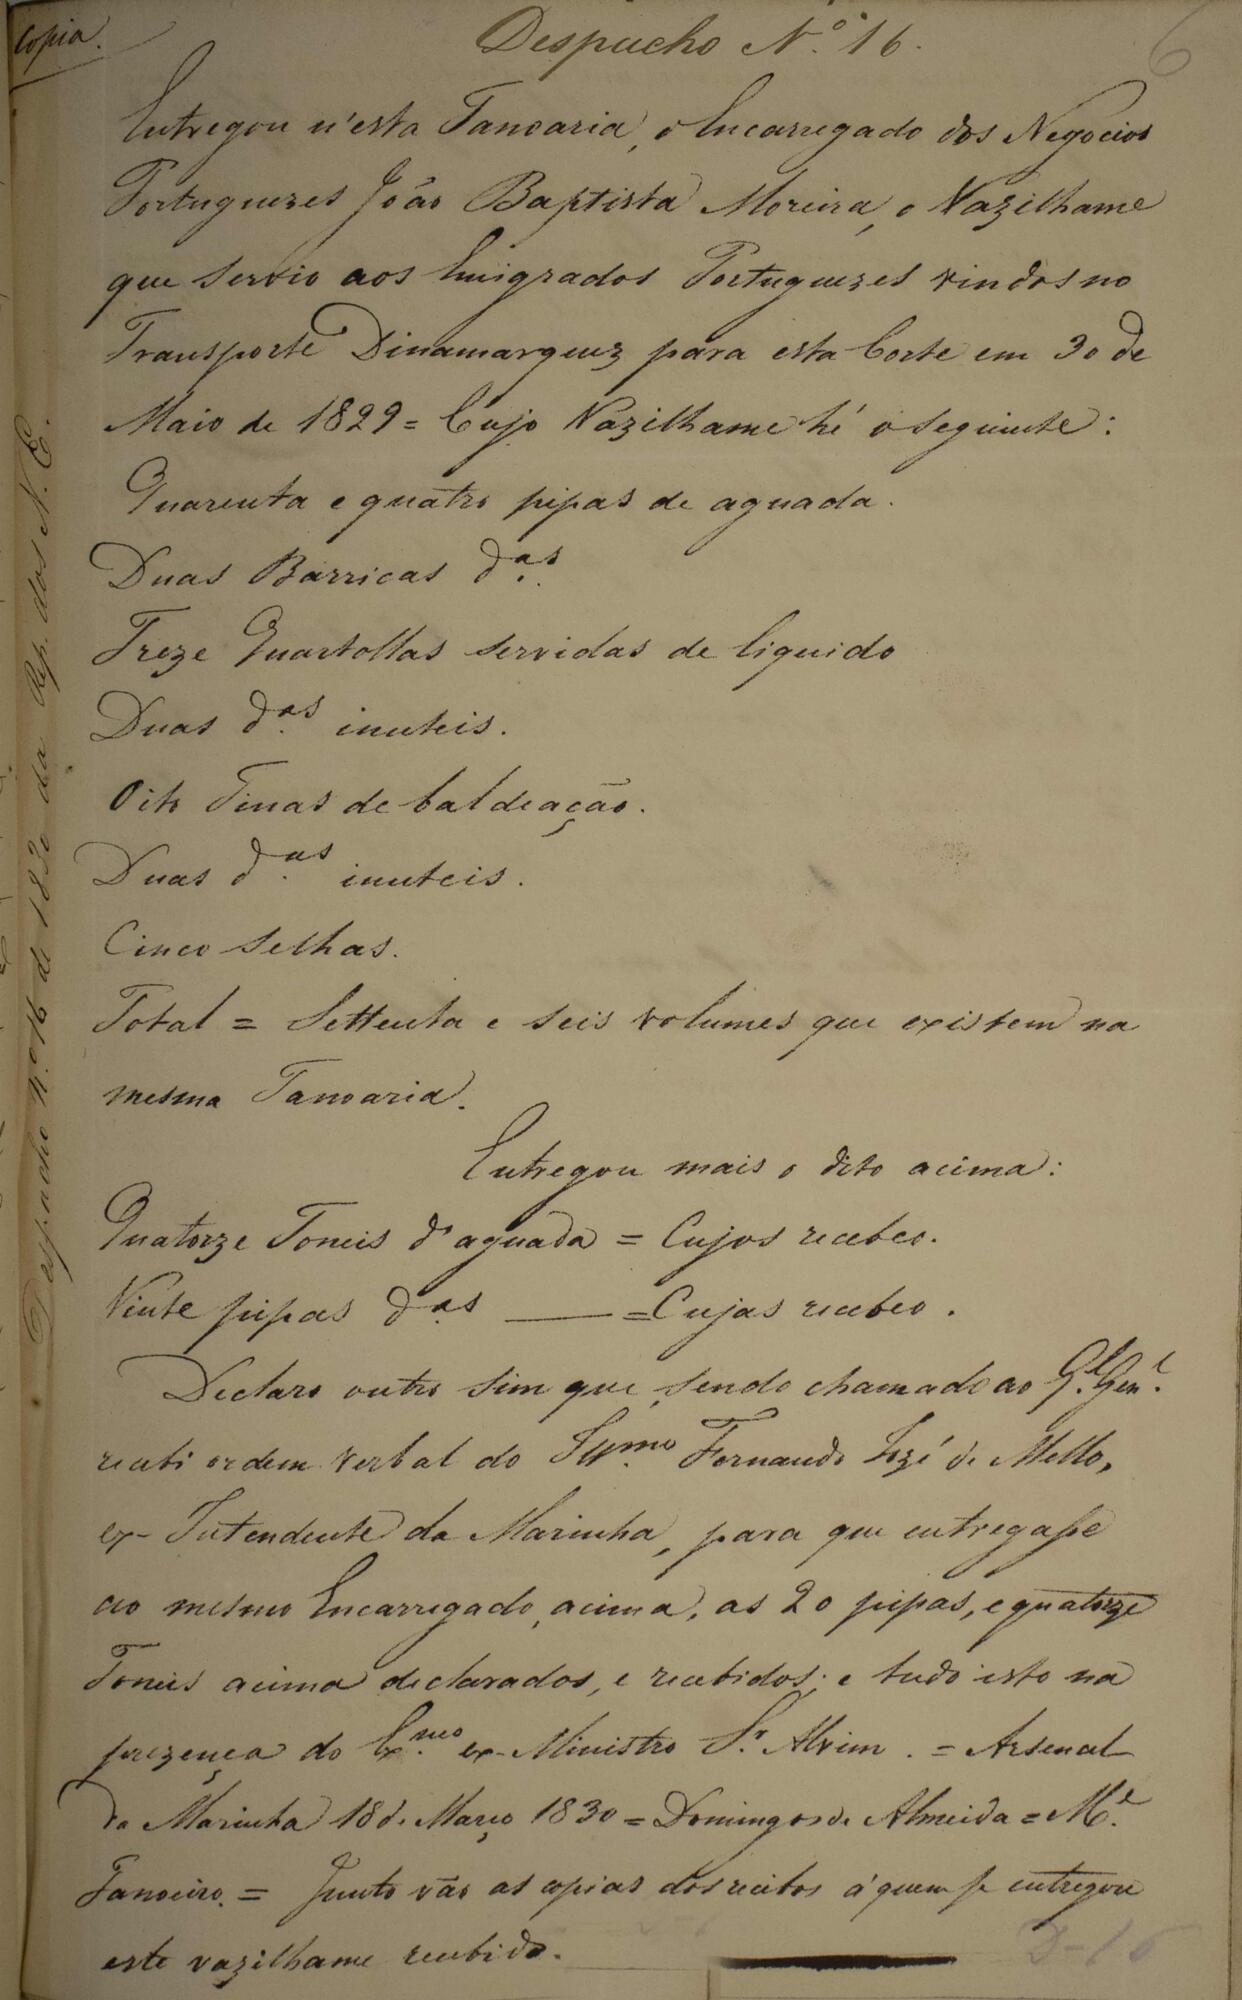 Copia.
Despacho N.º 16.
6
Entregou n'esta Tanoaria, o Encarregado dos Negocios
Portuguezes João Baptista Moreira, o Vazilhame
que servio aos Emigrados Portuguezes vindos no
Transporte Dinamarquez para esta Corte em 30 de
Maio de 1829 = Cujo Vazilhame hé o seguinte:
Quarenta e quatro pipas de aguada.
Duas Barricas d.as
Treze Quartollas servidas de liquido
Duas d.as inuteis.
Oito Tinas de baldeação.
Duas d.as inuteis.
Cinco Selhas.
Total = Settenta e seis volumes que existem na
mesma Tanoaria.
Entregou mais o dito acima:
Quatorze Toneis d'aguada = Cujos recebeo.
Vinte pipas d.as — = Cujas recebeo.
Declaro outro sim que, sendo chamado ao Q.el Gen.l
recebi ordem verbal do Ill.mo Fernando Jozé de Mello,
ex-Intendente da Marinha, para que entregasse
ao mesmo Encarregado, acima, as 20 pipas, e quatorze
Toneis acima declarados, e recebidos; e tudo isto na
prezença do Ex.mo ex-Ministro S.r Alvim. = Arsenal
da Marinha 18 de Março 1830 = Domingos de Almeida = M.e
Tanoeiro. = Junto vão as copias dos recibos á quem se entregou
este vazilhame recebido.
D-16
Despacho N.º 16 de 1830 da Rep. dos N. E.